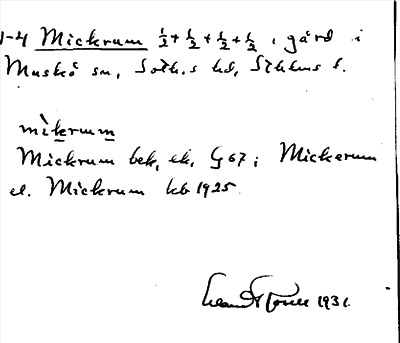 1-4 Mickrum ½+½+½+½, gård i
Muskö sn, Soth.s hd, Sthlms l.
mìkrum
Mickrum bek, ek, G 67; Mickerum
el. Mickrum kb 1925
1931.